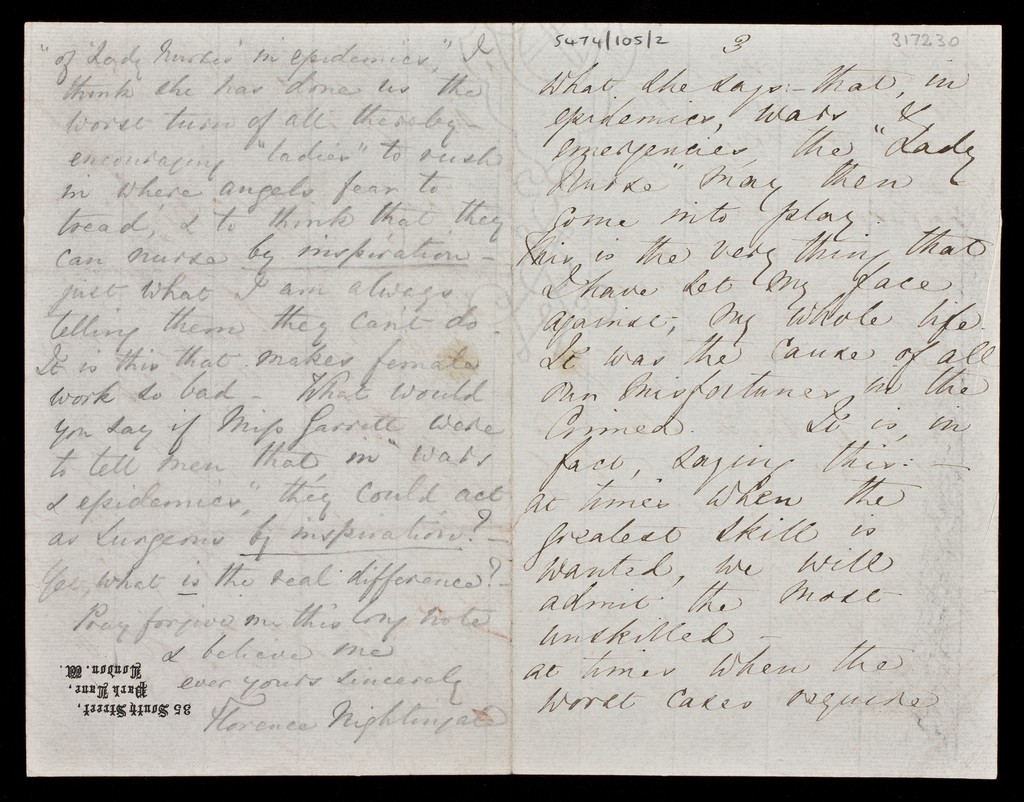 "of 'Lady Nurses' in epidemics," I
think she has done us the
worst turn of all thereby -
encouraging "ladies" to rush
in where angels fear to
tread, & to think that they
can nurse by inspiration -
just what I am always
telling them they can't do -
It is this that makes female
work so bad - What would
you say if Miss Garrett were
to tell men that, in "wars
& epidemics", they could act
as Surgeons by inspiration? -
Yet, what is the real difference? -
Pray forgive me this long note
& believe me
ever yours sincerely
Florence Nightingale
35 South Street,
Park Lane,
London. W.
5474/105/2
3
317230
what she says: - that, in
epidemics, wars &
emergencies, the "Lady
Nurse" may then
come into play.
This is the very thing that
I have set my face
against, my whole life.
It was the cause of all
our misfortunes in the
Crimea. It is, in
fact, saying this: -
at times when the
greatest skill is
wanted, we will
admit the most
unskilled -
at times when the
worst cases require